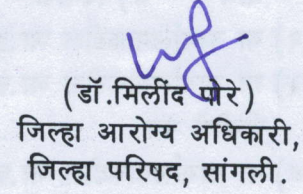 (डॉ.मिलींद पोरे)
जिल्हा आरोग्य अधिकारी,
जिल्हा परिषद, सांगली.